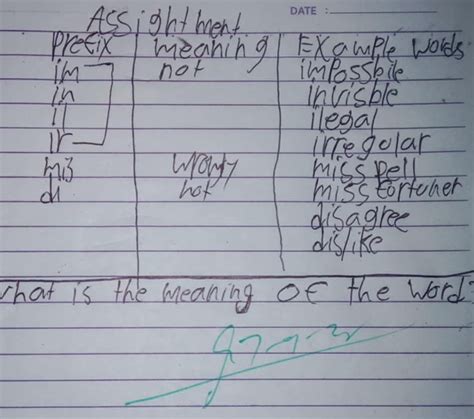 DATE :
ASSightment
prefix meaning EXample words
im not impossbile
in invisble
il ilegal
ir irregular
mis wrongy misspell
di not missfortuner
disagree
dislike
what is the meaning OF the word?